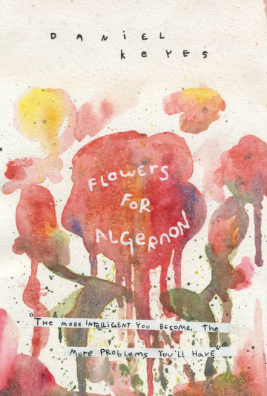 DANiEL
KeYES
FLOWERS
FoR
ALGERNON
"The more Intelligent You Become, the
More Problems You'll Have"